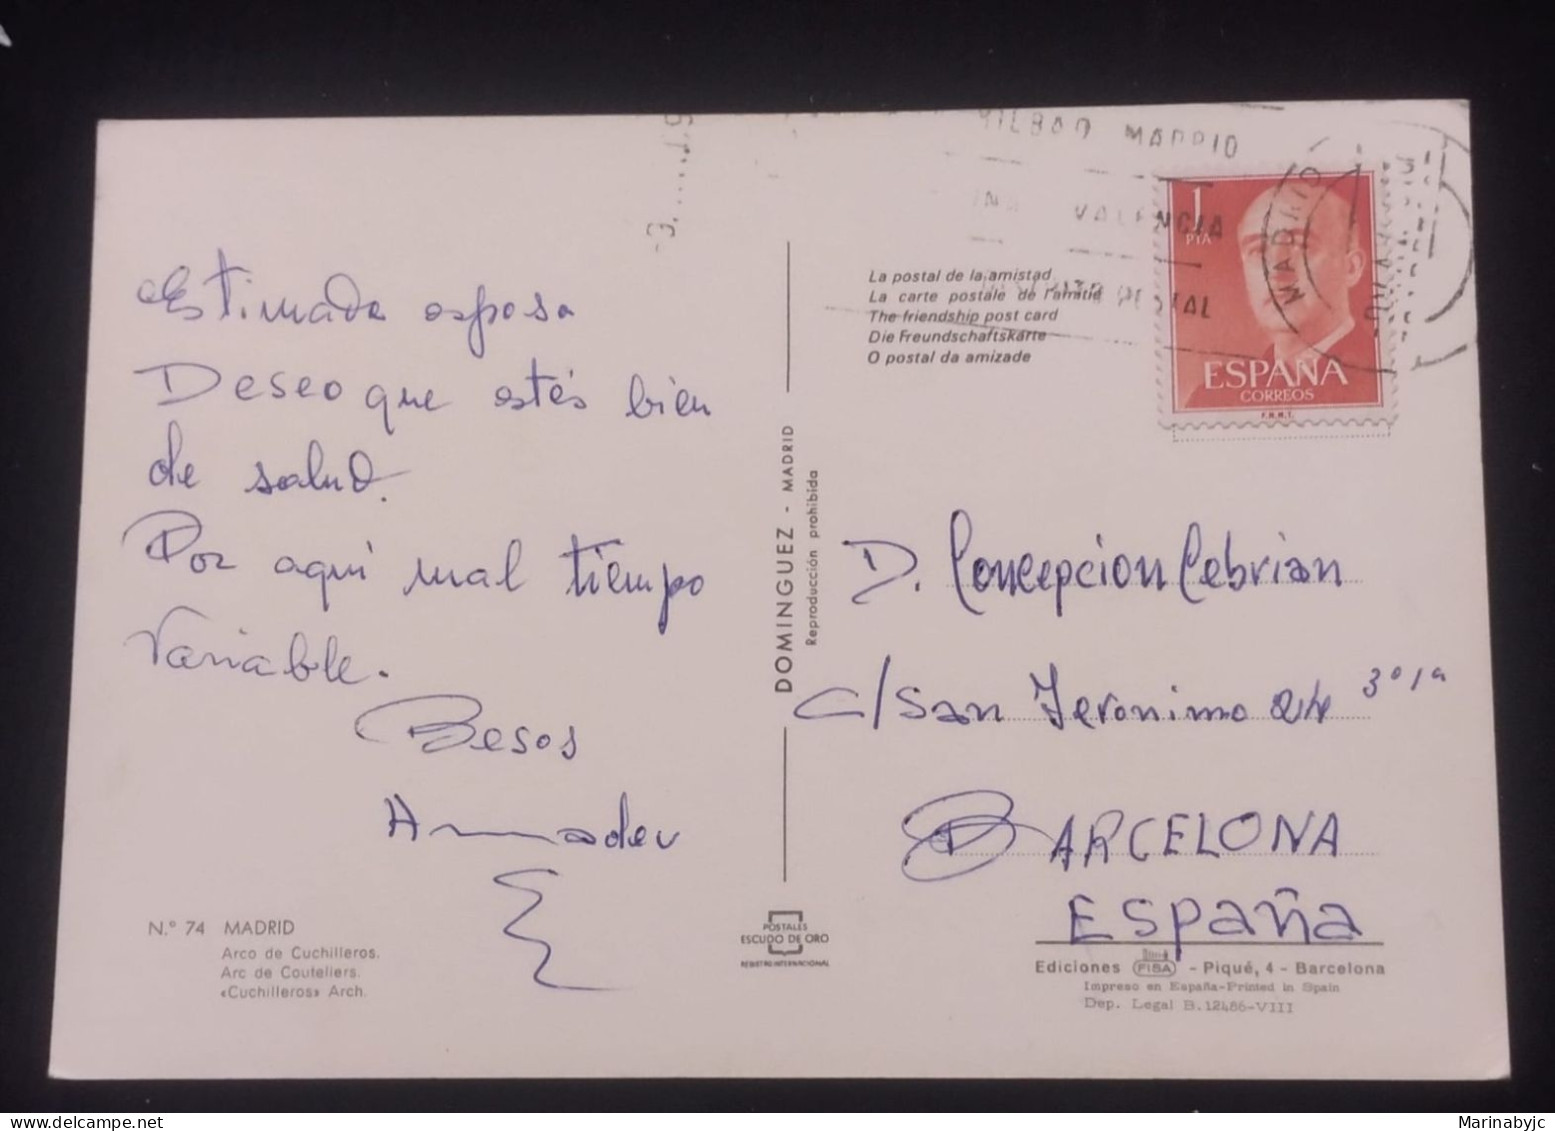 Estimada esposa
Deseo que estés bien
de salud.
Por aqui mal tiempo
Variable.
Besos
Amadeu
N.° 74 MADRID
Arco de Cuchilleros.
Arc de Couteliers.
«Cuchilleros» Arch.
DOMINGUEZ - MADRID
Reproducción prohibida
POSTALES
ESCUDO DE ORO
REGISTRO INTERNACIONAL
La postal de la amistad
La carte postale de l'amitié
The friendship post card
Die Freundschaftskarte
O postal da amizade
BILBAO MADRID
VALENCIA
POSTAL
MADRID
1
PTA
ESPAÑA
CORREOS
F.N.M.T.
D. Concepcion Cebrian
C/ San Jeronimo 24 3º 1ª
BARCELONA
España
Ediciones FISA - Piqué, 4 - Barcelona
Impreso en España-Printed in Spain
Dep. Legal B. 12486-VIII
delcampe.net
Marinabyjc